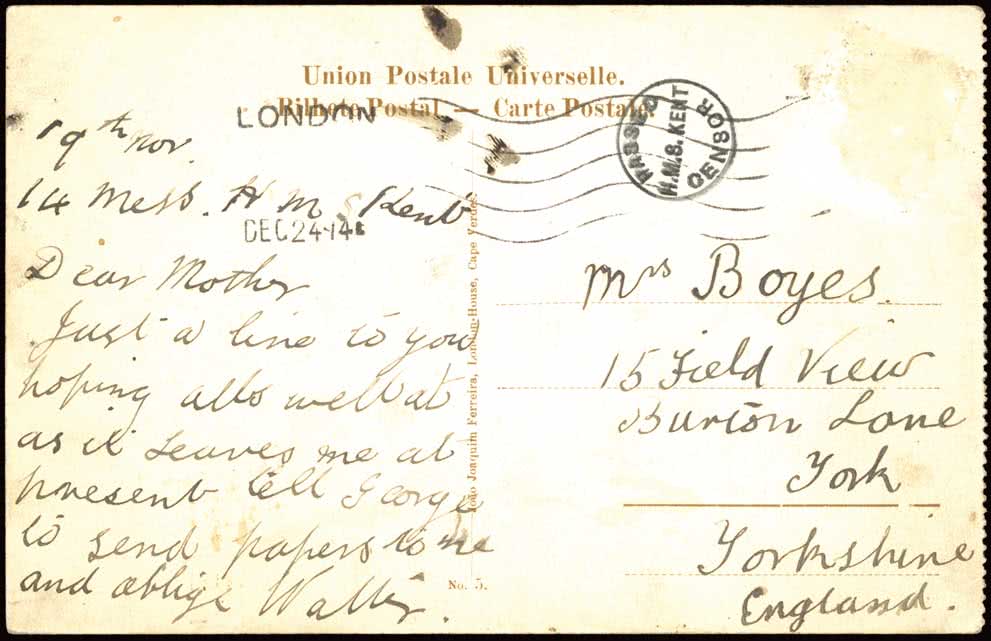 Union Postale Universelle.
Bilhete Postal — Carte Postale.
LONDON
DEC 24 14
PASSED
H.M.S. KENT
CENSOR
19th Nov.
14 Mess. H M S Kent
Dear Mother
Just a line to you
hoping alls well at
as it Leaves me at
present tell George
to send papers to me
and oblige Walter.
João Joaquim Ferreira, London-House, Cape Verde
No. 5.
Mrs Boyes.
15 Field View
Burton Lane
York
Yorkshire
England.